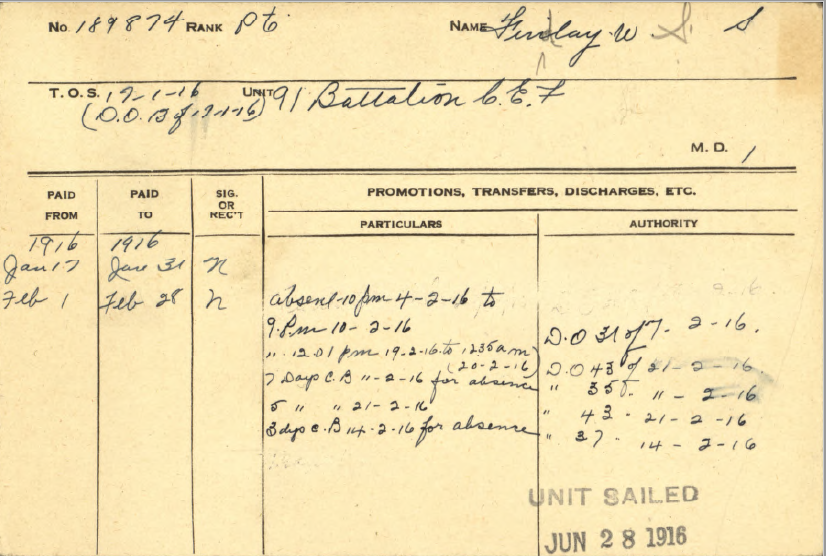 No. 189874 RANK Pte NAME Findlay W S S
T.O.S. 17-1-16 UNIT 91 Battalion C.E.F
(D.O. B of 17-1-16)
M. D. 1
PAID FROM PAID TO SIG. OR REC'T PROMOTIONS, TRANSFERS, DISCHARGES, ETC.
PARTICULARS AUTHORITY
1916 1916
Jan 17 Jan 31 N
Feb 1 Feb 28 N absent 10 pm 4-2-16 to
9. P.m 10-2-16 D.O 31 of 7-2-16.
" 12 01 pm 19-2-16 to 1235 a m D.O 43 of 21-2-16.
(20-2-16)
7 Days C.B "-2-16 for absence " 35 " - 2-16
5 " " 21-2-16 " 43 - 21-2-16
3 dys C.B 14-2-16 for absence " 37 - 14-2-16
UNIT SAILED
JUN 28 1916